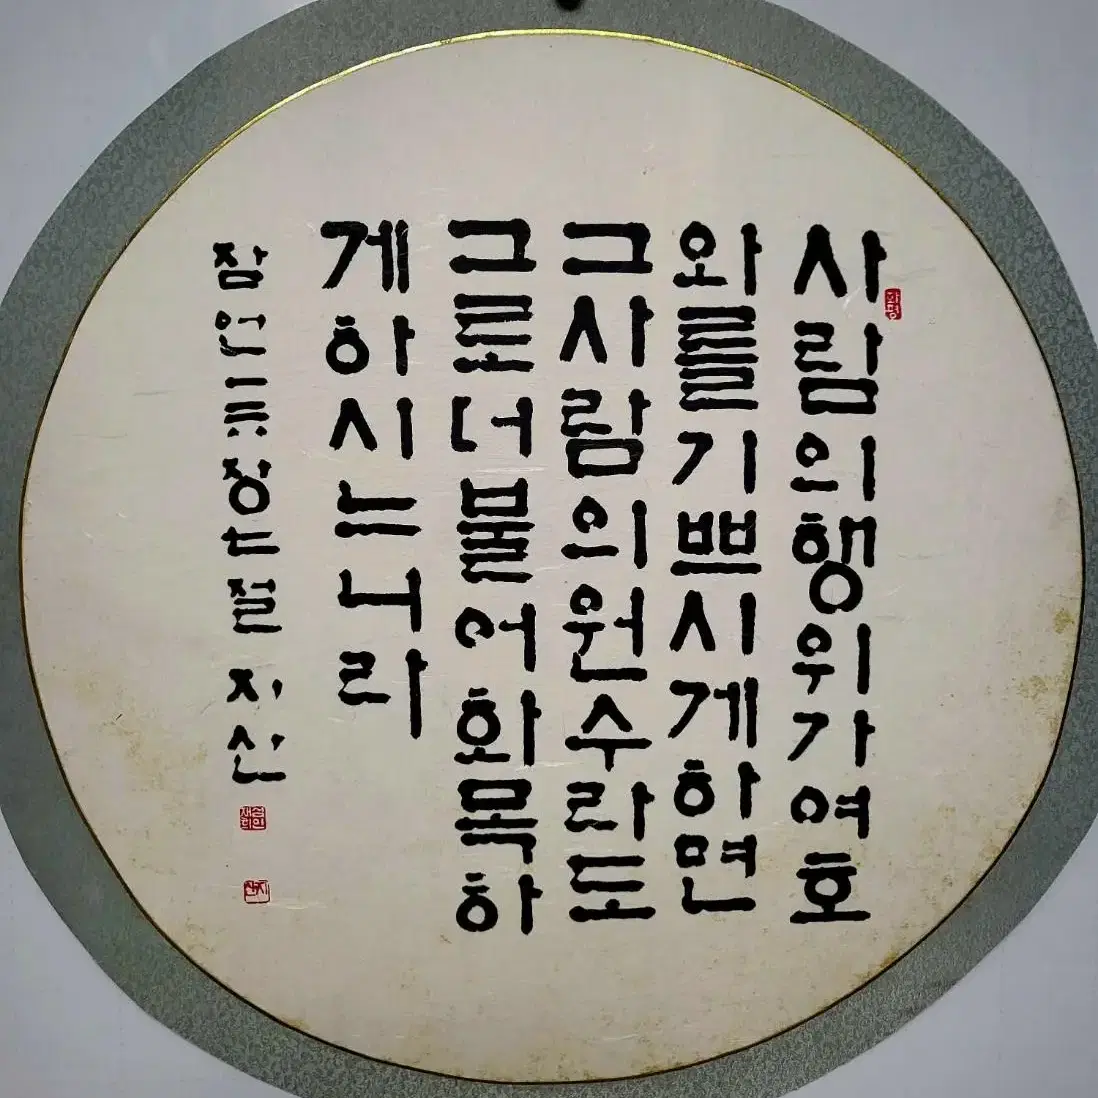 사람의행위가여호
와를기쁘시게하면
그사람의원수라도
그로더불어화목하
게하시느니라
잠언一六장七절 지산
화평
지산